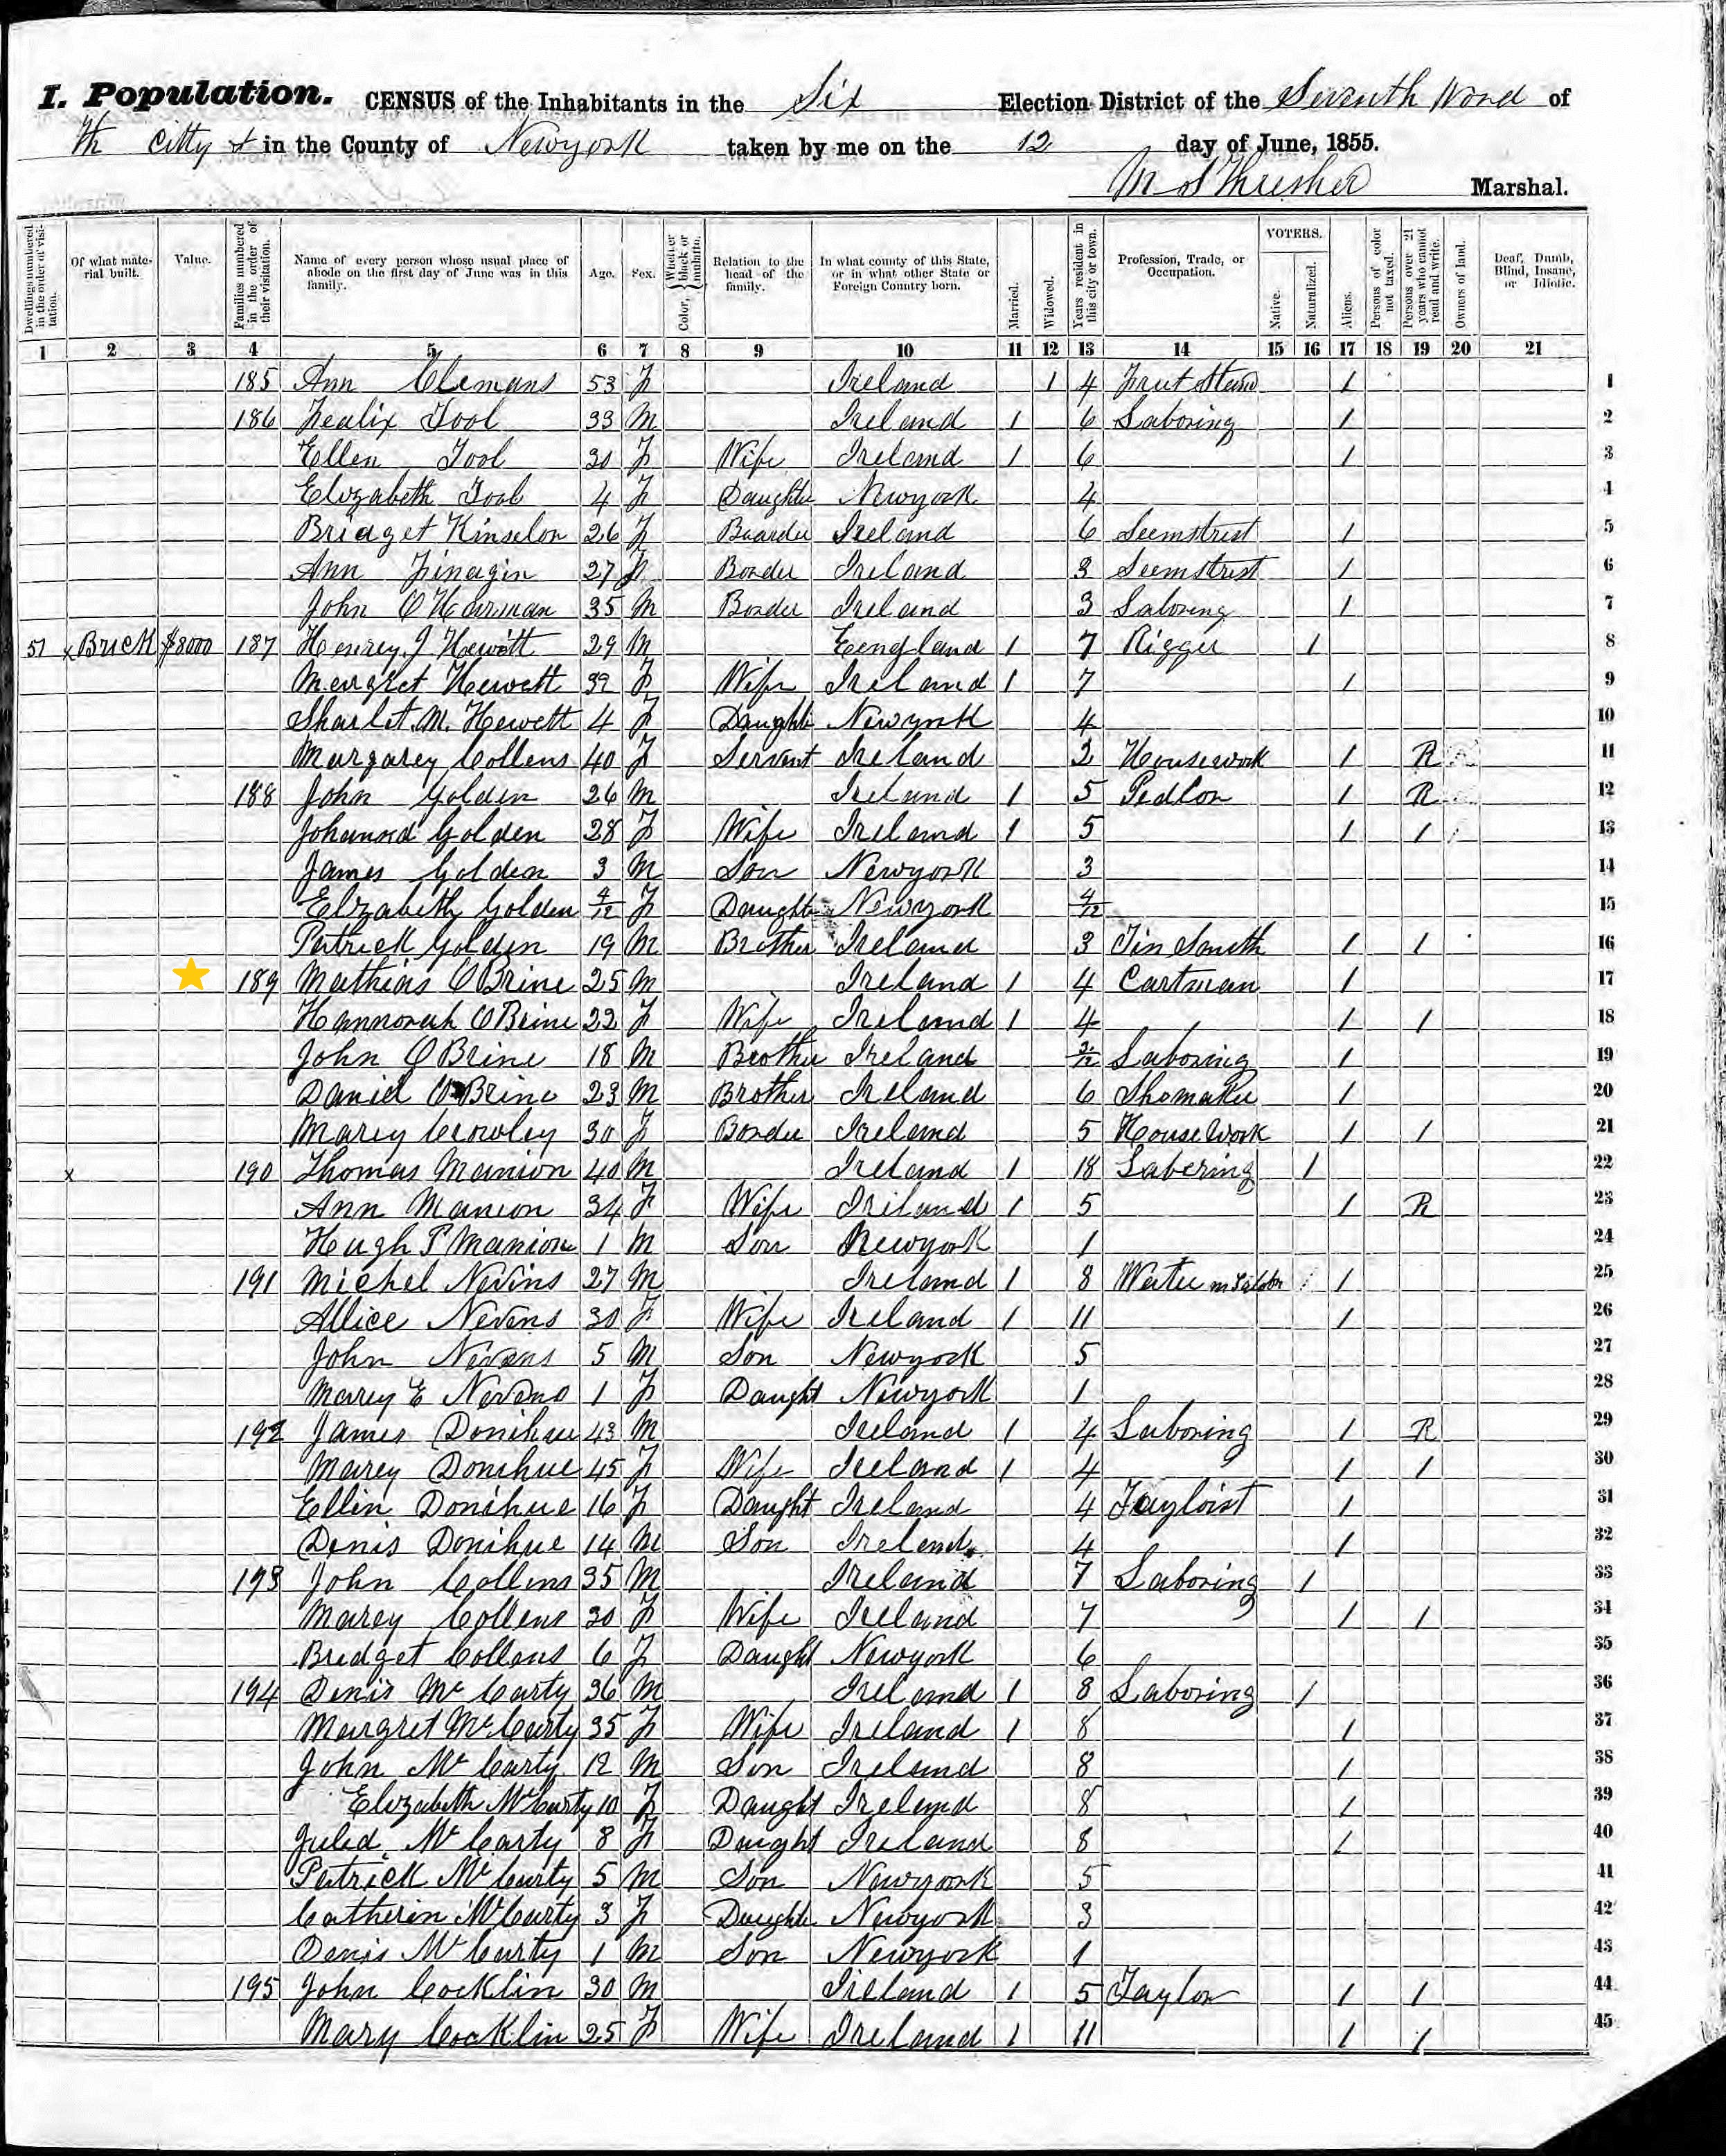 I. Population. CENSUS of the Inhabitants in the Six Election District of the Seventh Word of
Th Citty & in the County of Newyork taken by me on the 12 day of June, 1855.
Marshal.
Dwellings numbered in the order of visitation. Of what material built. Value. Families numbered in the order of their visitation. Name of every person whose usual place of abode on the first day of June was in this family. Age. Sex. Color, Whether black or mulatto. Relation to the head of the family. In what county of this State, or in what other State or Foreign Country born. Married. Widowed. Years resident in this city or town. Profession, Trade, or Occupation. VOTERS. Native. Naturalized. Aliens. Persons of color not taxed. Persons over 21 years who cannot read and write. Owners of land. Deaf, Dumb, Blind, Insane, or Idiotic.
1 2 3 4 5 6 7 8 9 10 11 12 13 14 15 16 17 18 19 20 21
185 Ann Clemans 53 F Ireland 1 4 Frut Stand 1 1
186 Fealix Tool 33 M Ireland 1 6 Laboring 1 2
Ellen Tool 30 F Wife Ireland 1 6 1 3
Elizabeth Tool 4 F Daughter Newyork 4 4
Bridget Kinselon 26 F Boarder Ireland 6 Seemstrest 1 5
Ann Finagin 27 F Border Ireland 3 Seemstrest 1 6
John O'Harman 35 M Border Ireland 3 Laboring 1 7
51 x Brick $8000 187 Henrey J Hewett 29 M Eengland 1 7 Rigger 1 8
Margret Hewett 39 F Wife Ireland 1 7 1 9
Sharlet. M. Hewett 4 F Daughter Newyork 4 10
Margarey Collens 40 F Servent Ireland 2 Housework 1 R 11
188 John Golden 26 M Ireland 1 5 Pedlor 1 R 12
Johanna Golden 28 F Wife Ireland 1 5 1 1 13
James Golden 3 M Son Newyork 3 14
Elizabeth Golden 4/12 F Daughter Newyork 4/12 15
Patrick Golden 19 M Brother Ireland 3 Tin Smith 1 1 16
189 Mathias OBrine 25 M Ireland 1 4 Cartman 1 17
Hannorah OBrine 22 F Wife Ireland 1 4 1 1 18
John OBrine 18 M Brother Ireland 2/12 Laboring 1 19
Daniel OBrine 23 M Brother Ireland 6 Shomaker 1 20
Marey Crowley 30 F Border Ireland 5 House Work 1 1 21
x 190 Thomas Manion 40 M Ireland 1 18 Labering 1 22
Ann Manion 34 F Wife Iriland 1 5 1 R 23
Hugh P Manion 1 M Son Newyork 1 24
191 Michel Nevins 27 M Ireland 1 8 Water in Saloon 1 25
Allice Nevens 30 F Wife Ireland 1 11 1 26
John Nevens 5 M Son Newyork 5 27
Marey E Nevens 1 F Daught Newyork 1 28
192 James Donihue 43 M Ireland 1 4 Laboring 1 R 29
Marey Donihue 45 F Wife Ireland 1 4 1 1 30
Ellin Donihue 16 F Daught Ireland 4 Tayloist 1 31
Denis Donihue 14 M Son Ireland 4 1 32
193 John Collens 35 M Ireland 7 Laboring 1 33
Marey Collens 30 F Wife Ireland 7 1 1 34
Bridget Collens 6 F Daught Newyork 6 35
194 Denis McCarty 36 M Ireland 1 8 Laboring 1 36
Margret McCarty 35 F Wife Ireland 1 8 1 37
John McCarty 12 M Son Ireland 8 1 38
Elizabeth McCarty 10 F Daught Ireland 8 1 39
Juled McCarty 8 F Daught Ireland 8 1 40
Patrick McCarty 5 M Son Newyork 5 41
Catherin McCarty 3 F Daughter Newyork 3 42
Denis McCarty 1 M Son Newyork 1 43
195 John Cocklin 30 M Ireland 1 5 Taylor 1 1 44
Mary Cocklin 25 F Wife Ireland 1 11 1 1 45